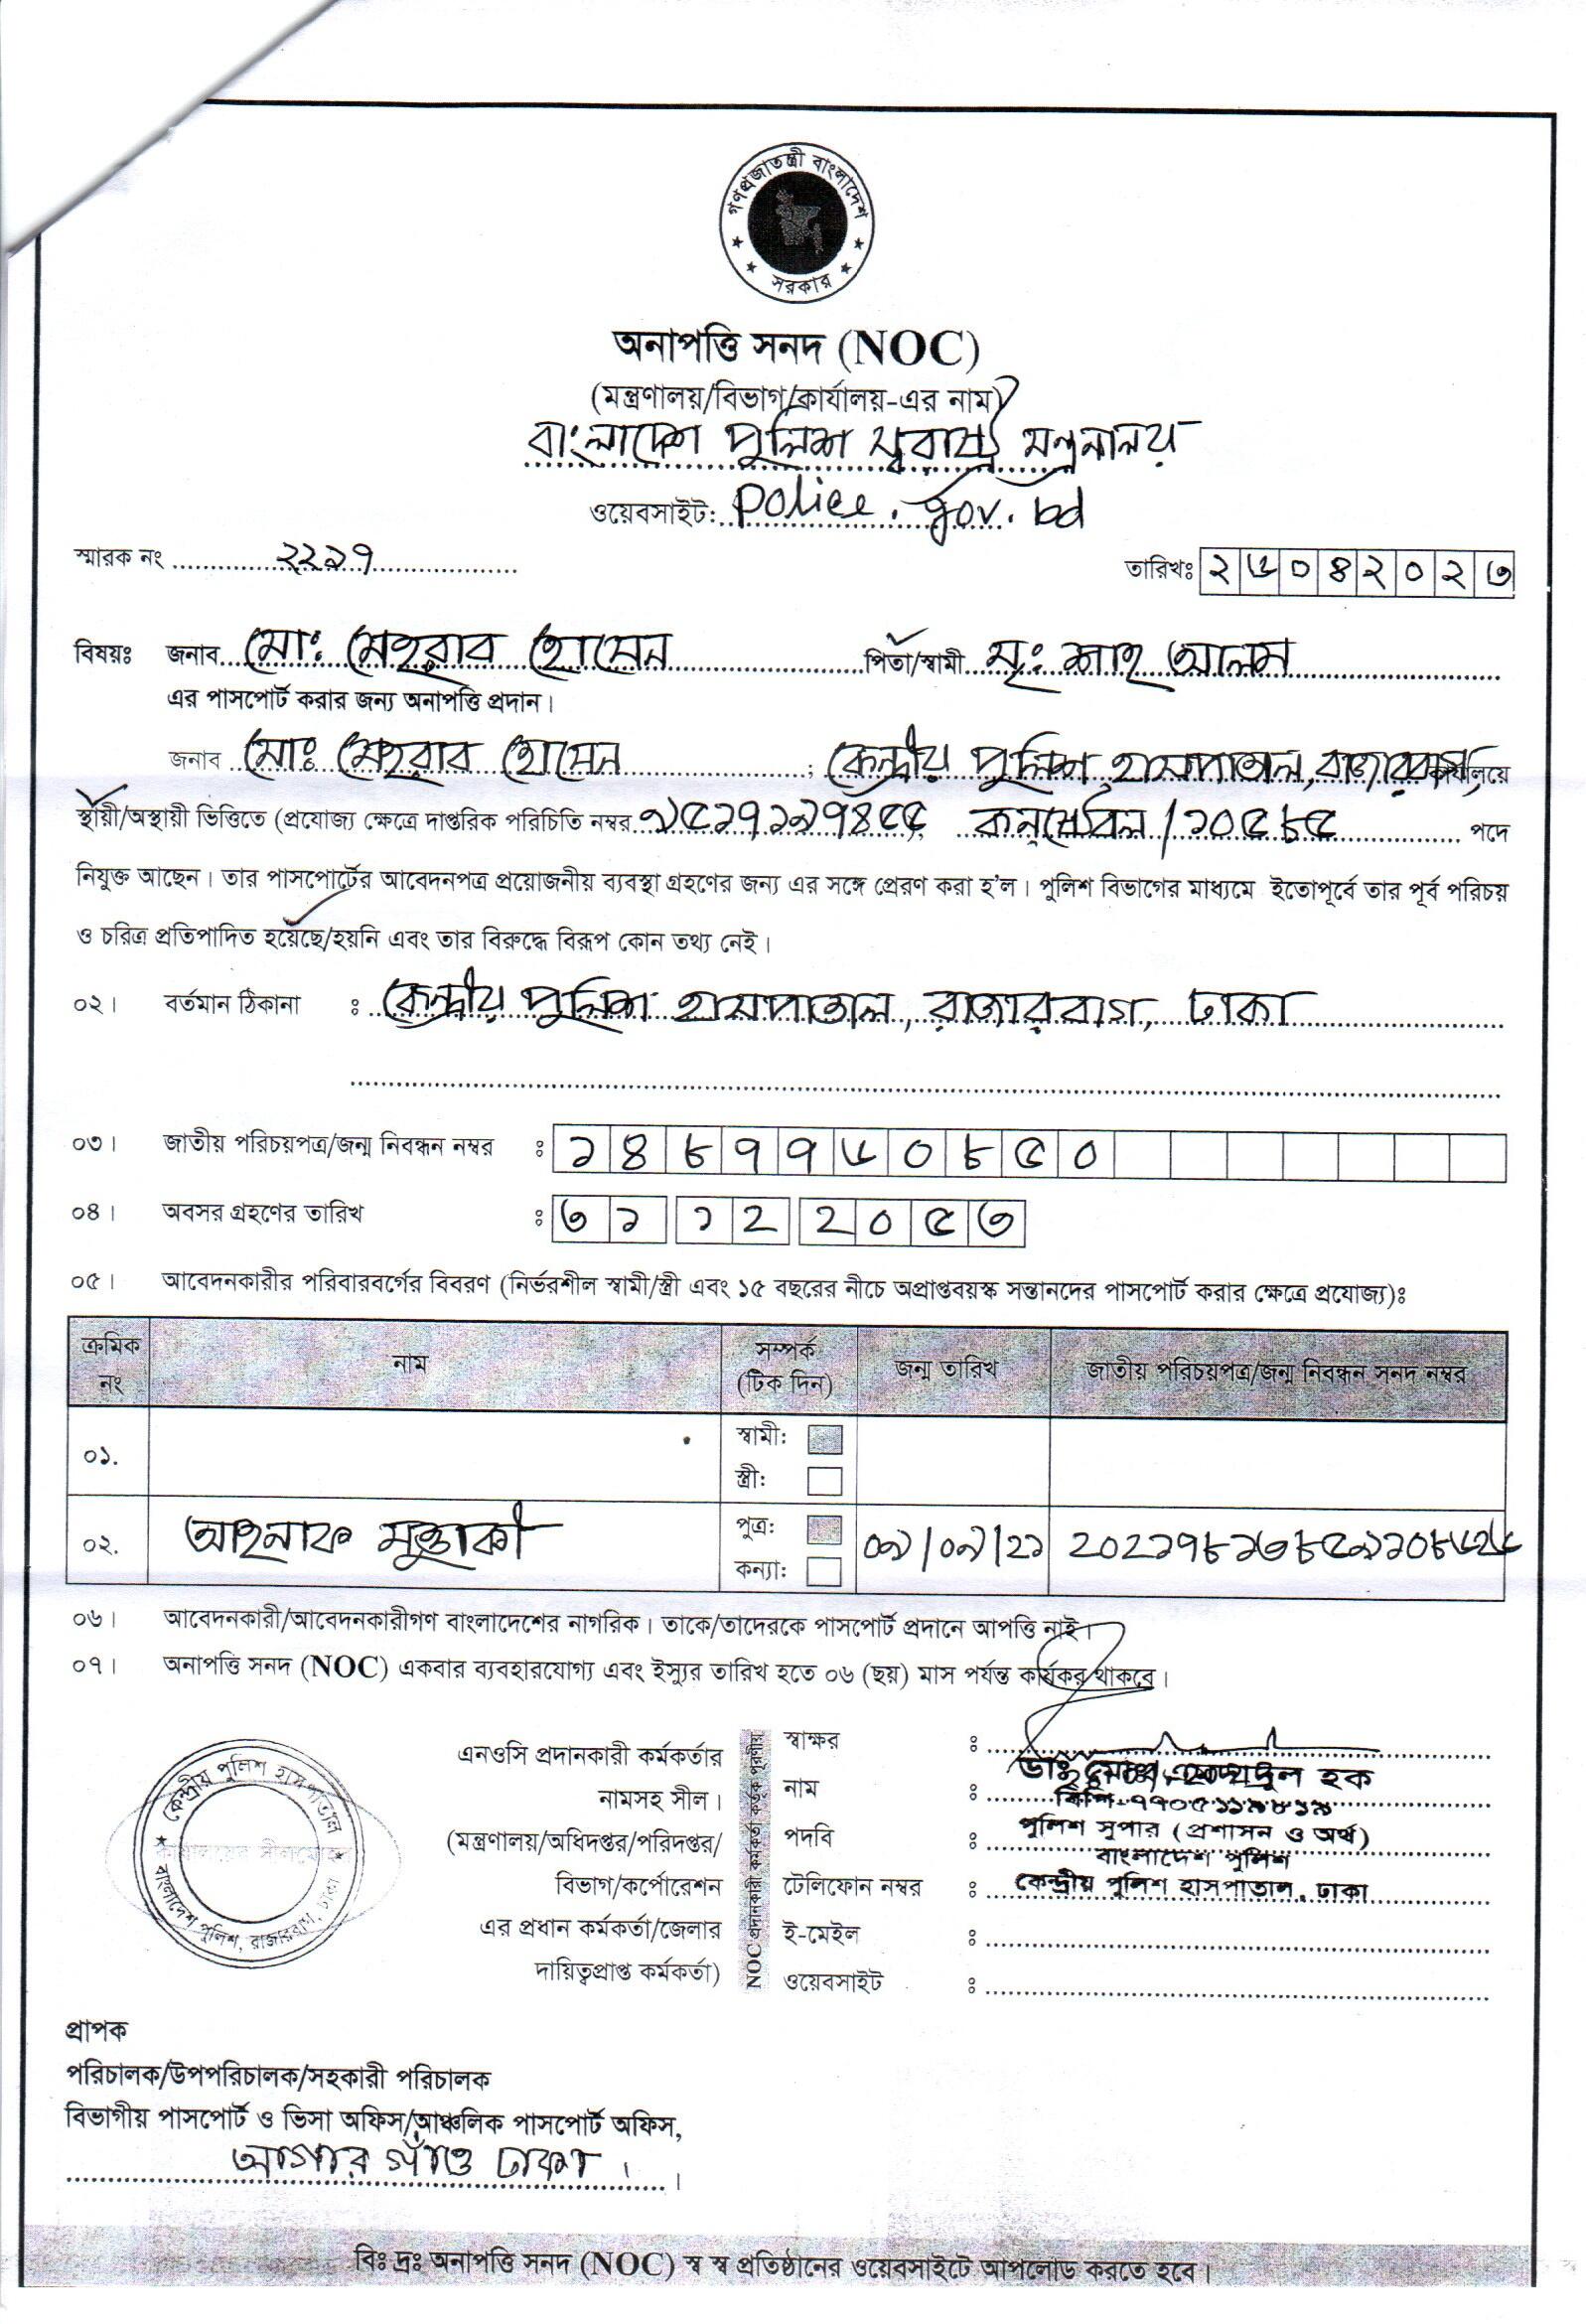 গণপ্রজাতন্ত্রী বাংলাদেশ
সরকার
অনাপত্তি সনদ (NOC)
(মন্ত্রণালয়/বিভাগ/কার্যালয়-এর নাম)
বাংলাদেশ পুলিশ স্বরাষ্ট্র মন্ত্রনালয়
ওয়েবসাইট: police.gov.bd
স্মারক নং ২২১৭ তারিখঃ ২৬০৪২০২৩
বিষয়ঃ জনাব মোঃ মেহরাব হোসেন পিতা/স্বামী মৃঃ শাহ আলম
এর পাসপোর্ট করার জন্য অনাপত্তি প্রদান।
জনাব মোঃ মেহরাব হোসেন ; কেন্দ্রীয় পুলিশ হাসপাতাল, রাজারবাগ, কার্যালয়ে
স্থায়ী/অস্থায়ী ভিত্তিতে (প্রযোজ্য ক্ষেত্রে দাপ্তরিক পরিচিতি নম্বর ৯৫১৭১৯৭৪৫৫), কনস্টেবল/১০৫৮৫ পদে
নিযুক্ত আছেন। তার পাসপোর্টের আবেদনপত্র প্রয়োজনীয় ব্যবস্থা গ্রহণের জন্য এর সঙ্গে প্রেরণ করা হ'ল। পুলিশ বিভাগের মাধ্যমে ইতোপূর্বে তার পূর্ব পরিচয়
ও চরিত্র প্রতিপাদিত হয়েছে/হয়নি এবং তার বিরুদ্ধে বিরূপ কোন তথ্য নেই।
০২। বর্তমান ঠিকানা : কেন্দ্রীয় পুলিশ হাসপাতাল, রাজারবাগ, ঢাকা
০৩। জাতীয় পরিচয়পত্র/জন্ম নিবন্ধন নম্বর : ১৪৮৭৭৬০৮৫০
০৪। অবসর গ্রহণের তারিখ : ৩১ ১২ ২০৫৩
০৫। আবেদনকারীর পরিবারবর্গের বিবরণ (নির্ভরশীল স্বামী/স্ত্রী এবং ১৫ বছরের নীচে অপ্রাপ্তবয়স্ক সন্তানদের পাসপোর্ট করার ক্ষেত্রে প্রযোজ্য)ঃ
ক্রমিক নং নাম সম্পর্ক (টিক দিন) জন্ম তারিখ জাতীয় পরিচয়পত্র/জন্ম নিবন্ধন সনদ নম্বর
০১. স্বামী:
স্ত্রী:
০২. আহনাফ মুত্তাকী পুত্র: ০৯/০৯/২১
কন্যা:
০৬। আবেদনকারী/আবেদনকারীগণ বাংলাদেশের নাগরিক। তাকে/তাদেরকে পাসপোর্ট প্রদানে আপত্তি নাই।
০৭। অনাপত্তি সনদ (NOC) একবার ব্যবহারযোগ্য এবং ইস্যুর তারিখ হতে ০৬ (ছয়) মাস পর্যন্ত কার্যকর থাকবে।
কেন্দ্রীয় পুলিশ হাসপাতাল
বাংলাদেশ পুলিশ, রাজারবাগ, ঢাকা
এনওসি প্রদানকারী কর্মকর্তার
নামসহ সীল।
(মন্ত্রণালয়/অধিদপ্তর/পরিদপ্তর/
বিভাগ/কর্পোরেশন
এর প্রধান কর্মকর্তা/জেলার
দায়িত্বপ্রাপ্ত কর্মকর্তা)
NOC প্রদানকারী কর্মকর্তা কর্তৃক পূরণীয়
স্বাক্ষর :
নাম : ডাঃ মোঃ এমদাদুল হক
বিপি-৭৭০৫১১৯৮১৯
পদবি : পুলিশ সুপার (প্রশাসন ও অর্থ)
বাংলাদেশ পুলিশ
টেলিফোন নম্বর : কেন্দ্রীয় পুলিশ হাসপাতাল, ঢাকা
ই-মেইল :
ওয়েবসাইট :
প্রাপক
পরিচালক/উপপরিচালক/সহকারী পরিচালক
বিভাগীয় পাসপোর্ট ও ভিসা অফিস/আঞ্চলিক পাসপোর্ট অফিস,
আগারগাঁও ঢাকা।
বিঃ দ্রঃ অনাপত্তি সনদ (NOC) স্ব স্ব প্রতিষ্ঠানের ওয়েবসাইটে আপলোড করতে হবে।